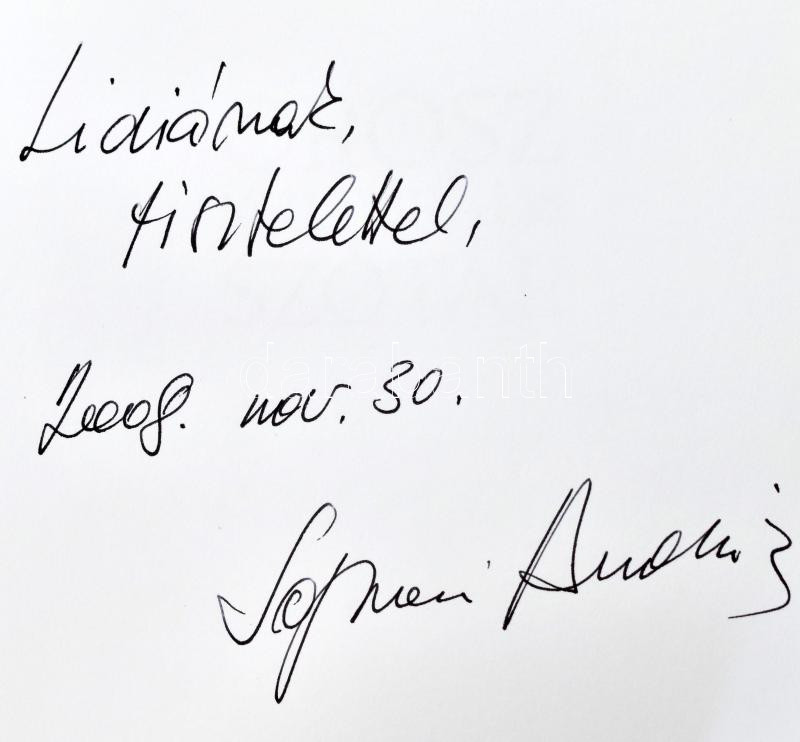 Lidiának,
tisztelettel,
2008. nov. 30.
Soproni András
darabanth